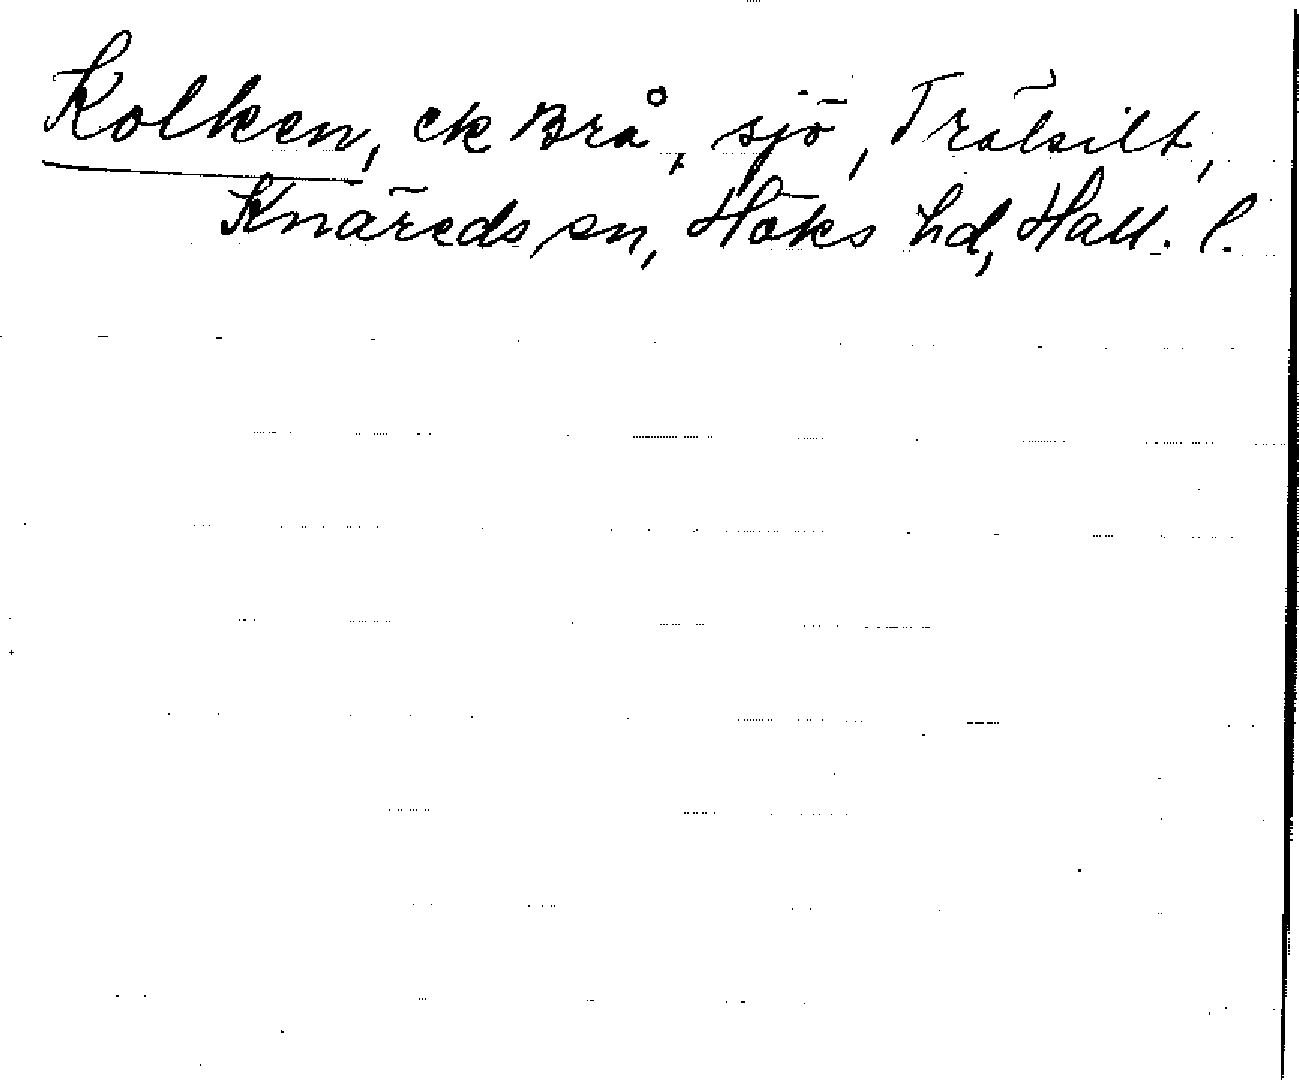 Kolken, ek Brå, sjö, Trälsilt,
Knäreds sn, Höks hd, Hall. l.